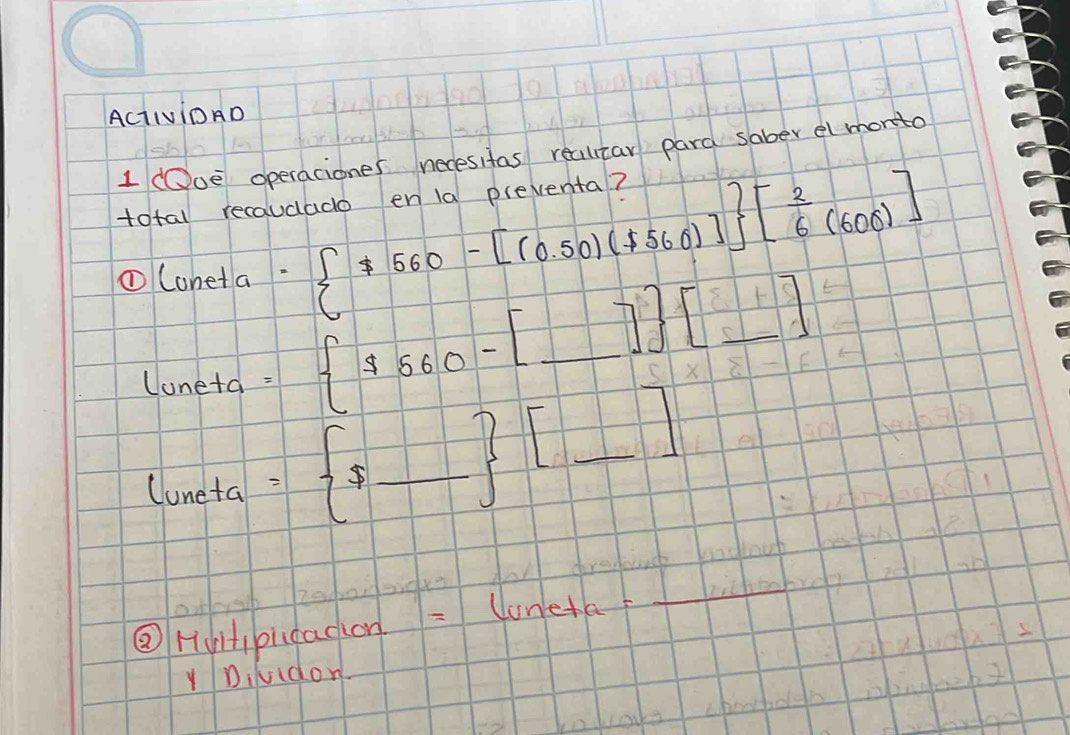 ACTIVIDAD
1 ¿Qué operaciones necesitas realizar para saber el monto
total recaudado en la preventa?
① Luneta = { $ 560 - [(0.50)($560)]}[2/6 (600)]
Luneta = { $ 560 - [___]}[___]
Luneta = { $ ___ } [___]
② Multiplicacion = Luneta = ___
y Division.